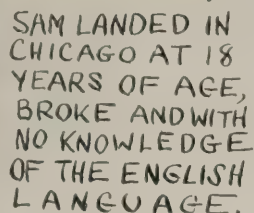 SAM LANDED IN
CHICAGO AT 18
YEARS OF AGE,
BROKE AND WITH
NO KNOWLEDGE
OF THE ENGLISH
LANGUAGE.